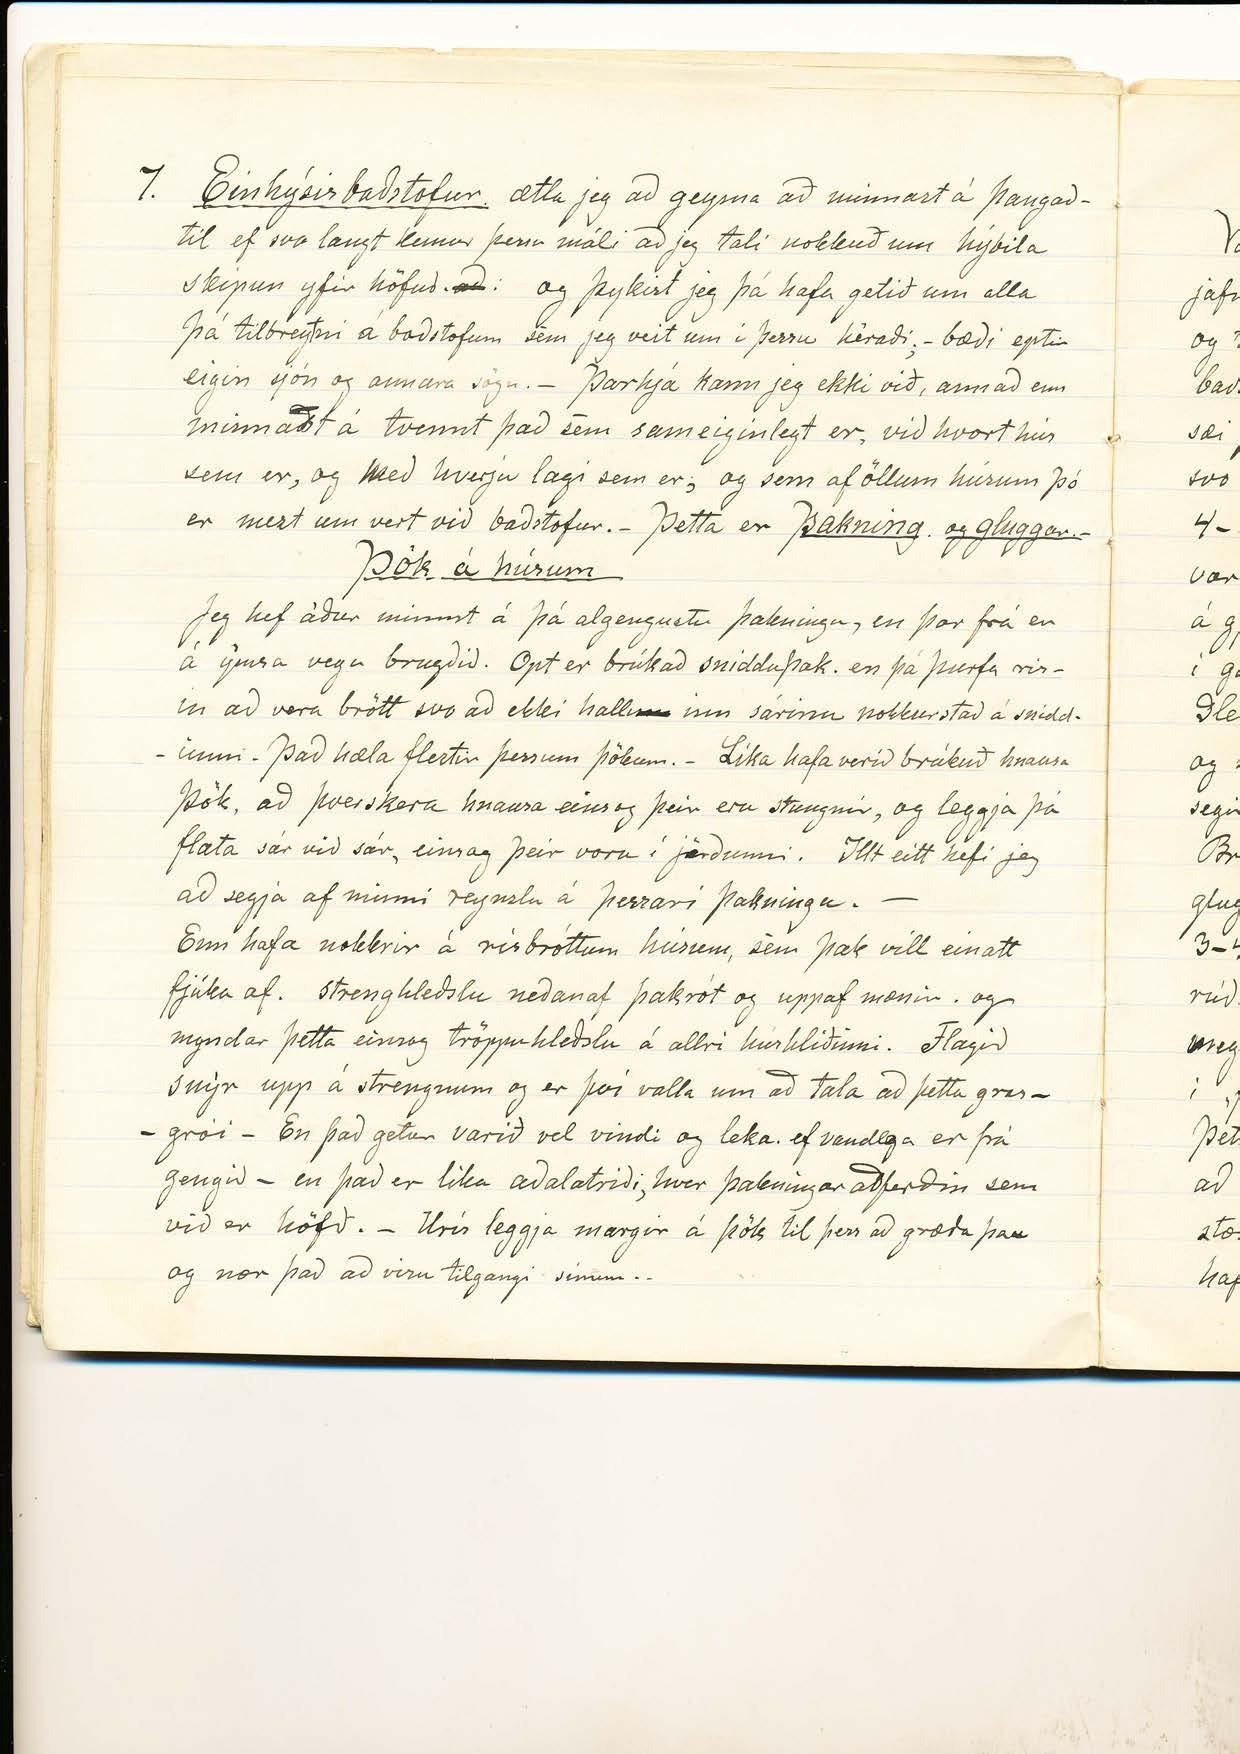 7. Einhýsisbaðstofur. ætla jeg að geyma að minnast á þangað-
til ef svo langt kemur þessu máli að jeg tali nokkuð um hýbíla
skipun yfir höfuð. að: og þykist jeg þá hafa getið um alla
þá tilbreytni á baðstofum sem jeg veit um í þessu héraði; - bæði eptir
eigin sjón og annara sögu. - Þarhjá kann jeg ekki við, annað enn
minnast á tvennt það sem sameiginlegt er, við hvort hús
sem er, og með hverju lagi sem er; og sem af öllum húsum þó
er mezt um vert við baðstofur. - Þetta er Þakning. og gluggar. -
Þök á húsum
Jeg hef áður minnst á þá algengustu þakningu, en þar frá er
á ýmsa vegu brugðið. Opt er brúkað snidduþak. en þá þurfa ris-
in að vera brött svo að ekki halli inn sárinu nokkurstað á snidd-
- unni - Það hæla flestir þessum þökum. - Líka hafa verið brúkuð hnausa
þök, að þverskera hnausa einsog þeir eru stungnir, og leggja þá
flata sár við sár, einsog þeir voru í jörðunni. Illt eitt hefi jeg
að segja af minni reynslu á þessari þakningu. -
Enn hafa nokkrir á risbröttum húsum, sem þak vill einatt
fjúka af. strenghleðslu neðanaf þakrót og uppaf mænir. og
myndar þetta einsog tröppuhleðslu á allri húshliðinni. Flagið
snýr upp á strengnum og er því valla um að tala að þetta gras-
- grói - En það getur varið vel vindi og leka. ef vandlega er frá
gengið - en það er líka aðalatriði, hver þakningar aðferðin sem
við er höfð. - Hrís leggja margir á þök til þess að græða þau
og nær það að vísu tilgangi sínum. -